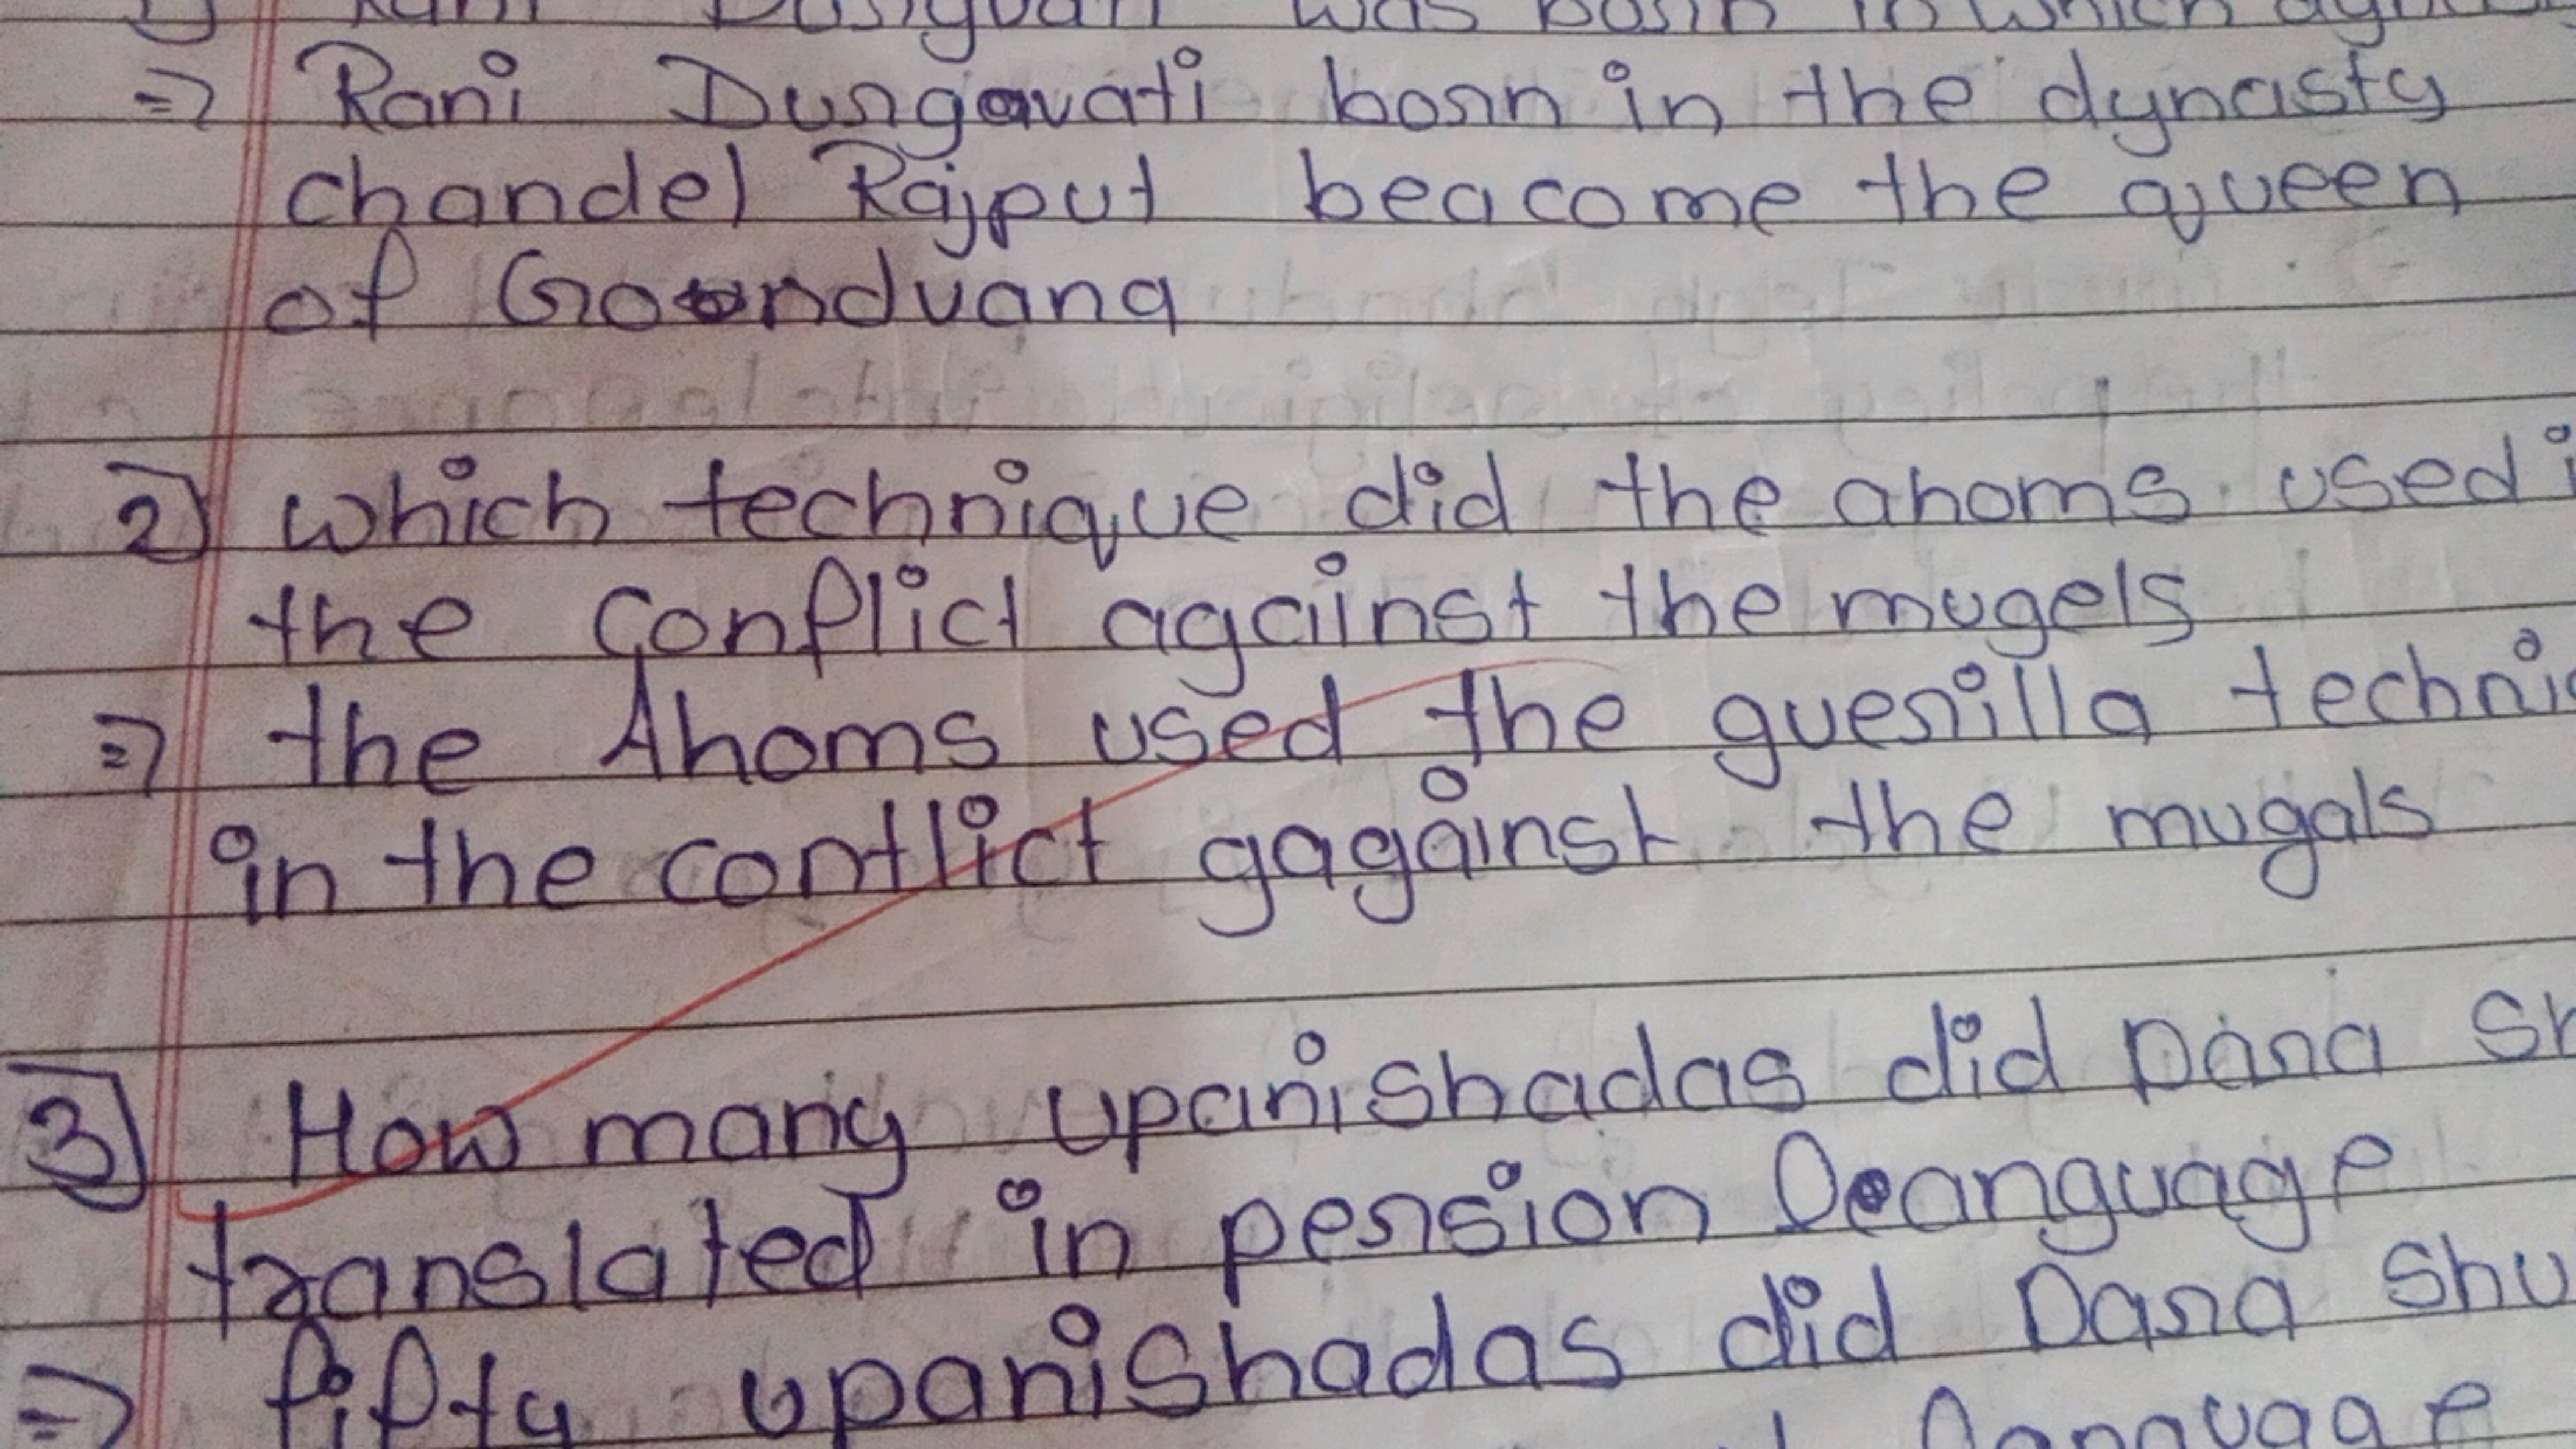 1) Rani Durgvati was born in which
=> Rani Durgavati born in the dynasty
chandel Rajput beacome the queen
of Goondvana
2) which technique did the ahoms used i
the conflict against the mugels
=> the Ahoms used the guerilla techni
in the contlict gagainst the mugals
3) How many upanishadas did Dara Sh
translated in persion leanguage
=> fifty upanishadas did Dara Shu
language